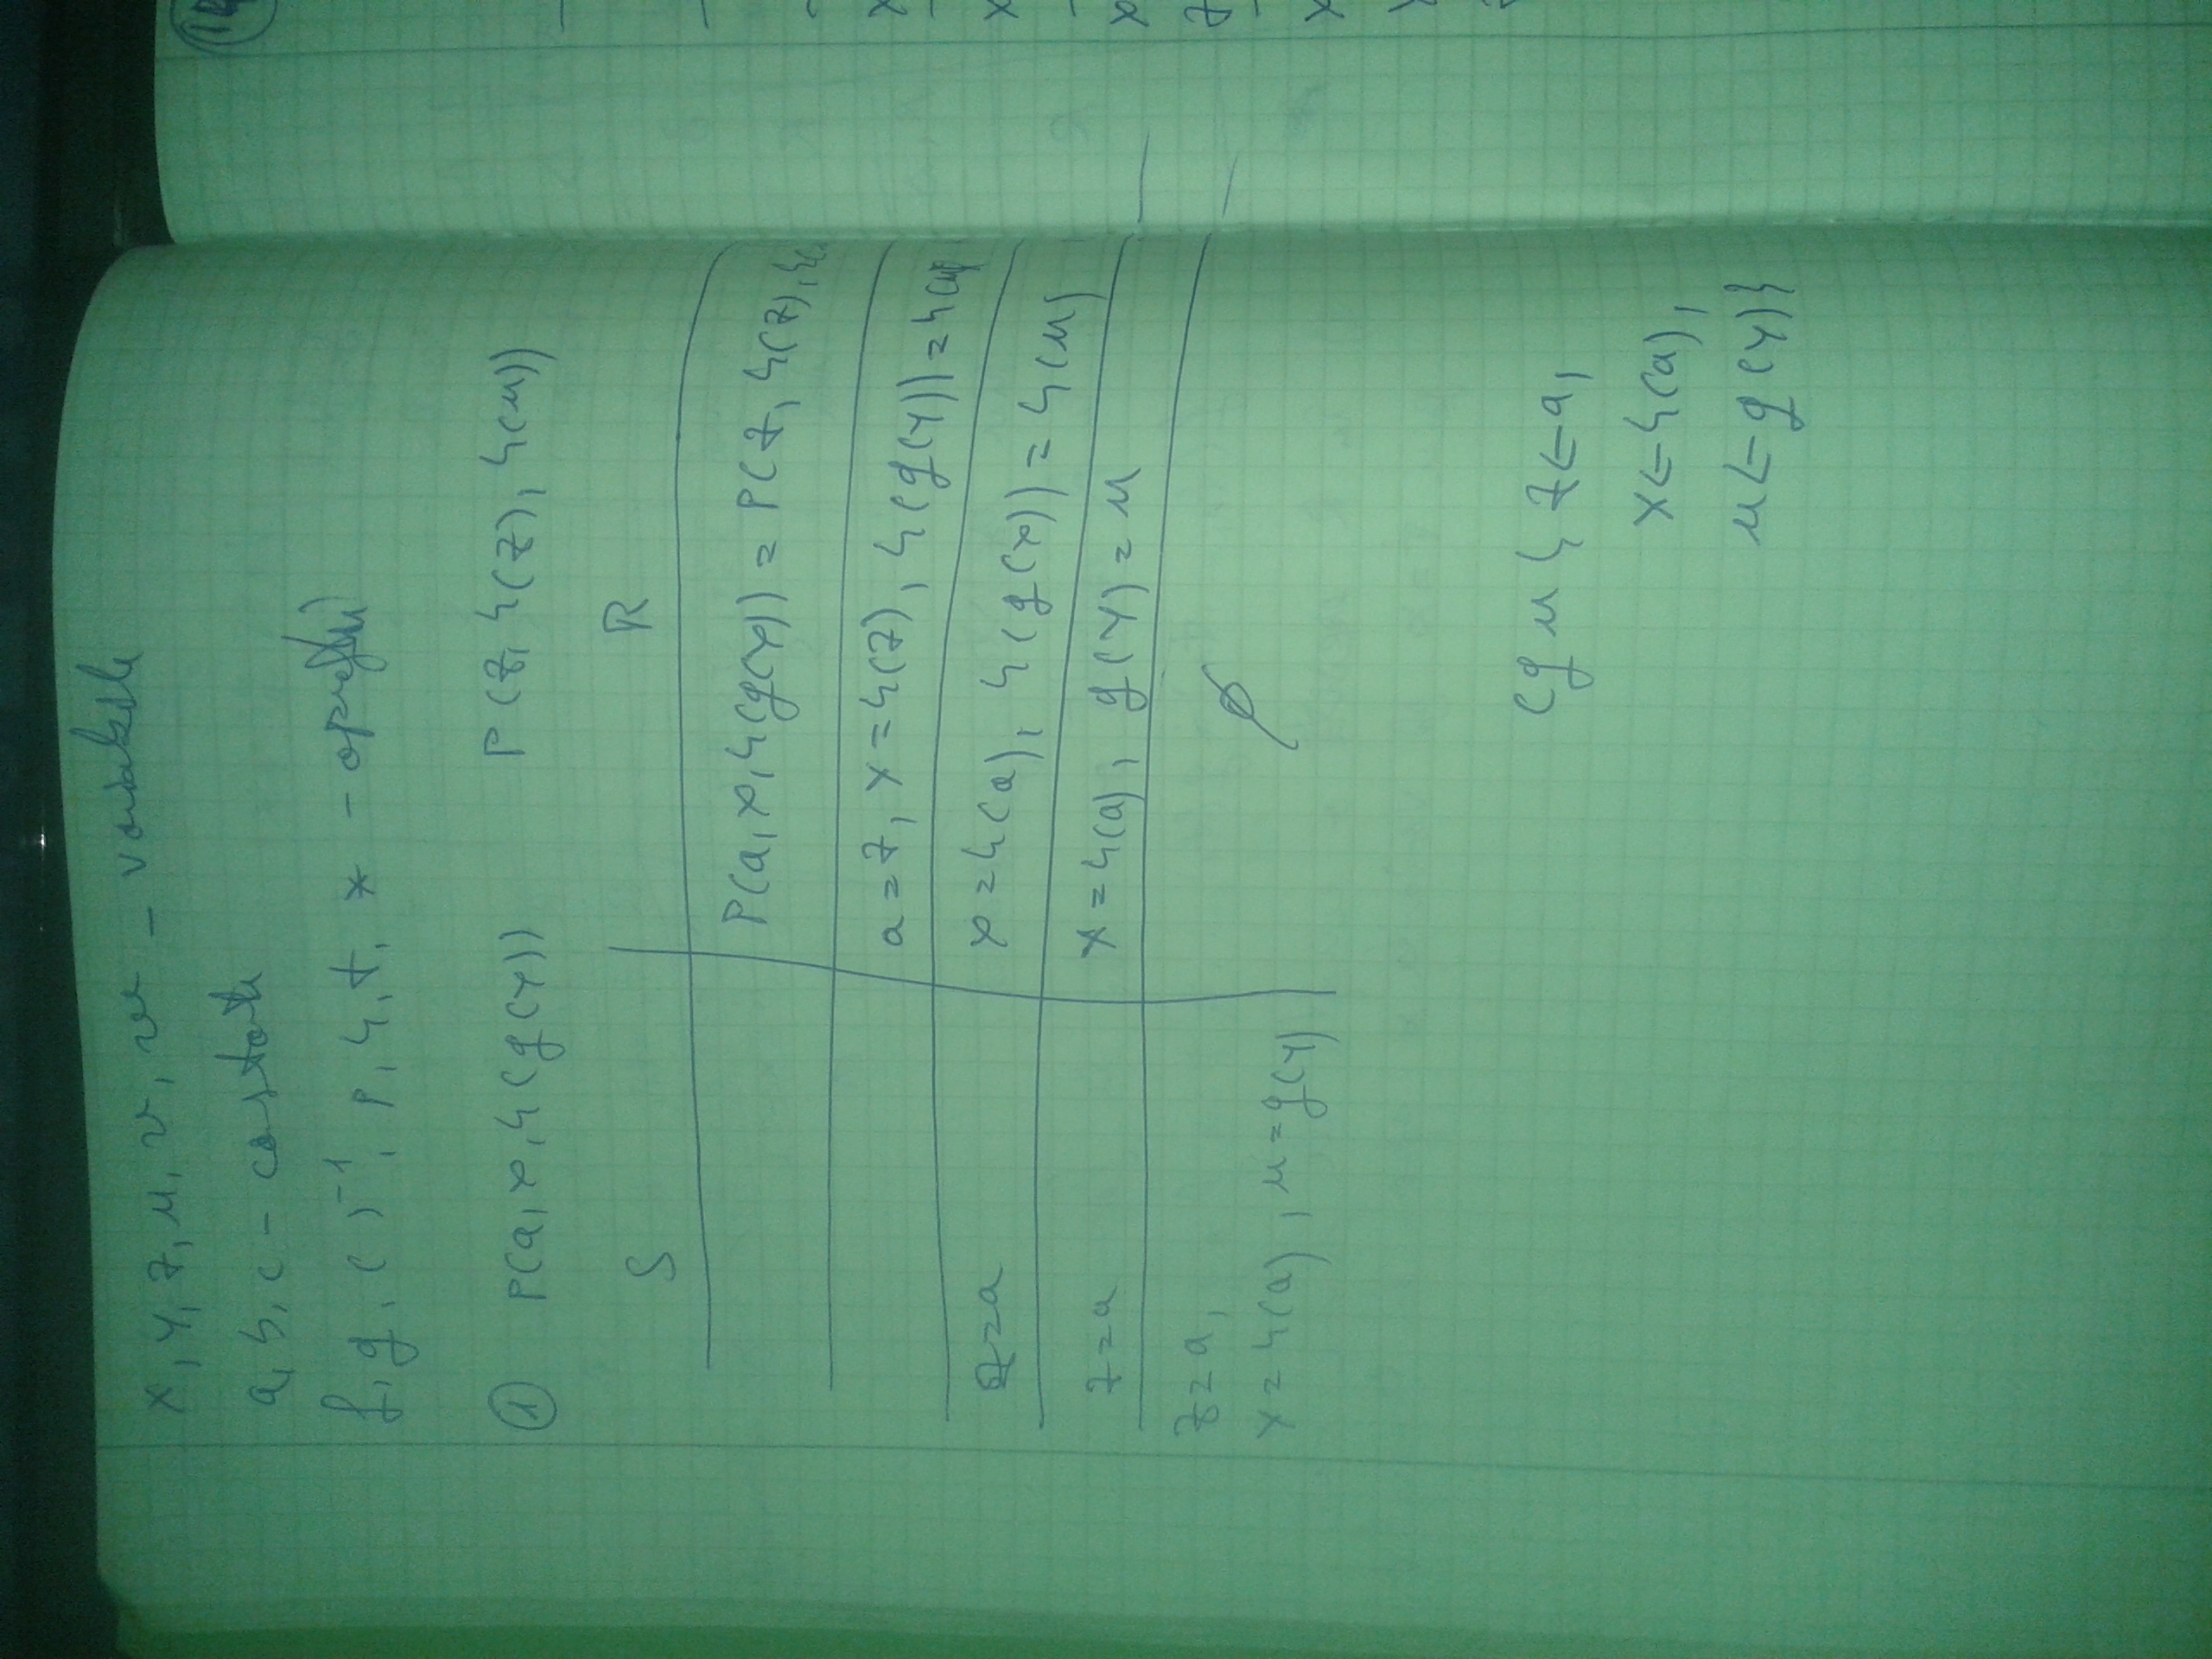 x, y, z, u, v, w - variabile
a, b, c - constante
f, g, ( )⁻¹, p, h, t, * - operații
① P(a, x, h(g(y)) P(z, h(z), h(u))
S R
P(a, x, h(g(y)) = P(z, h(z), h(
a = z, x = h(z), h(g(y)) = h(u)
z = a x = h(a), h(g(y)) = h(u)
z = a x = h(a), g(y) = u
z = a,
x = h(a), u = g(y) ∅
cgu { z ← a,
x ← h(a),
u ← g(y)}